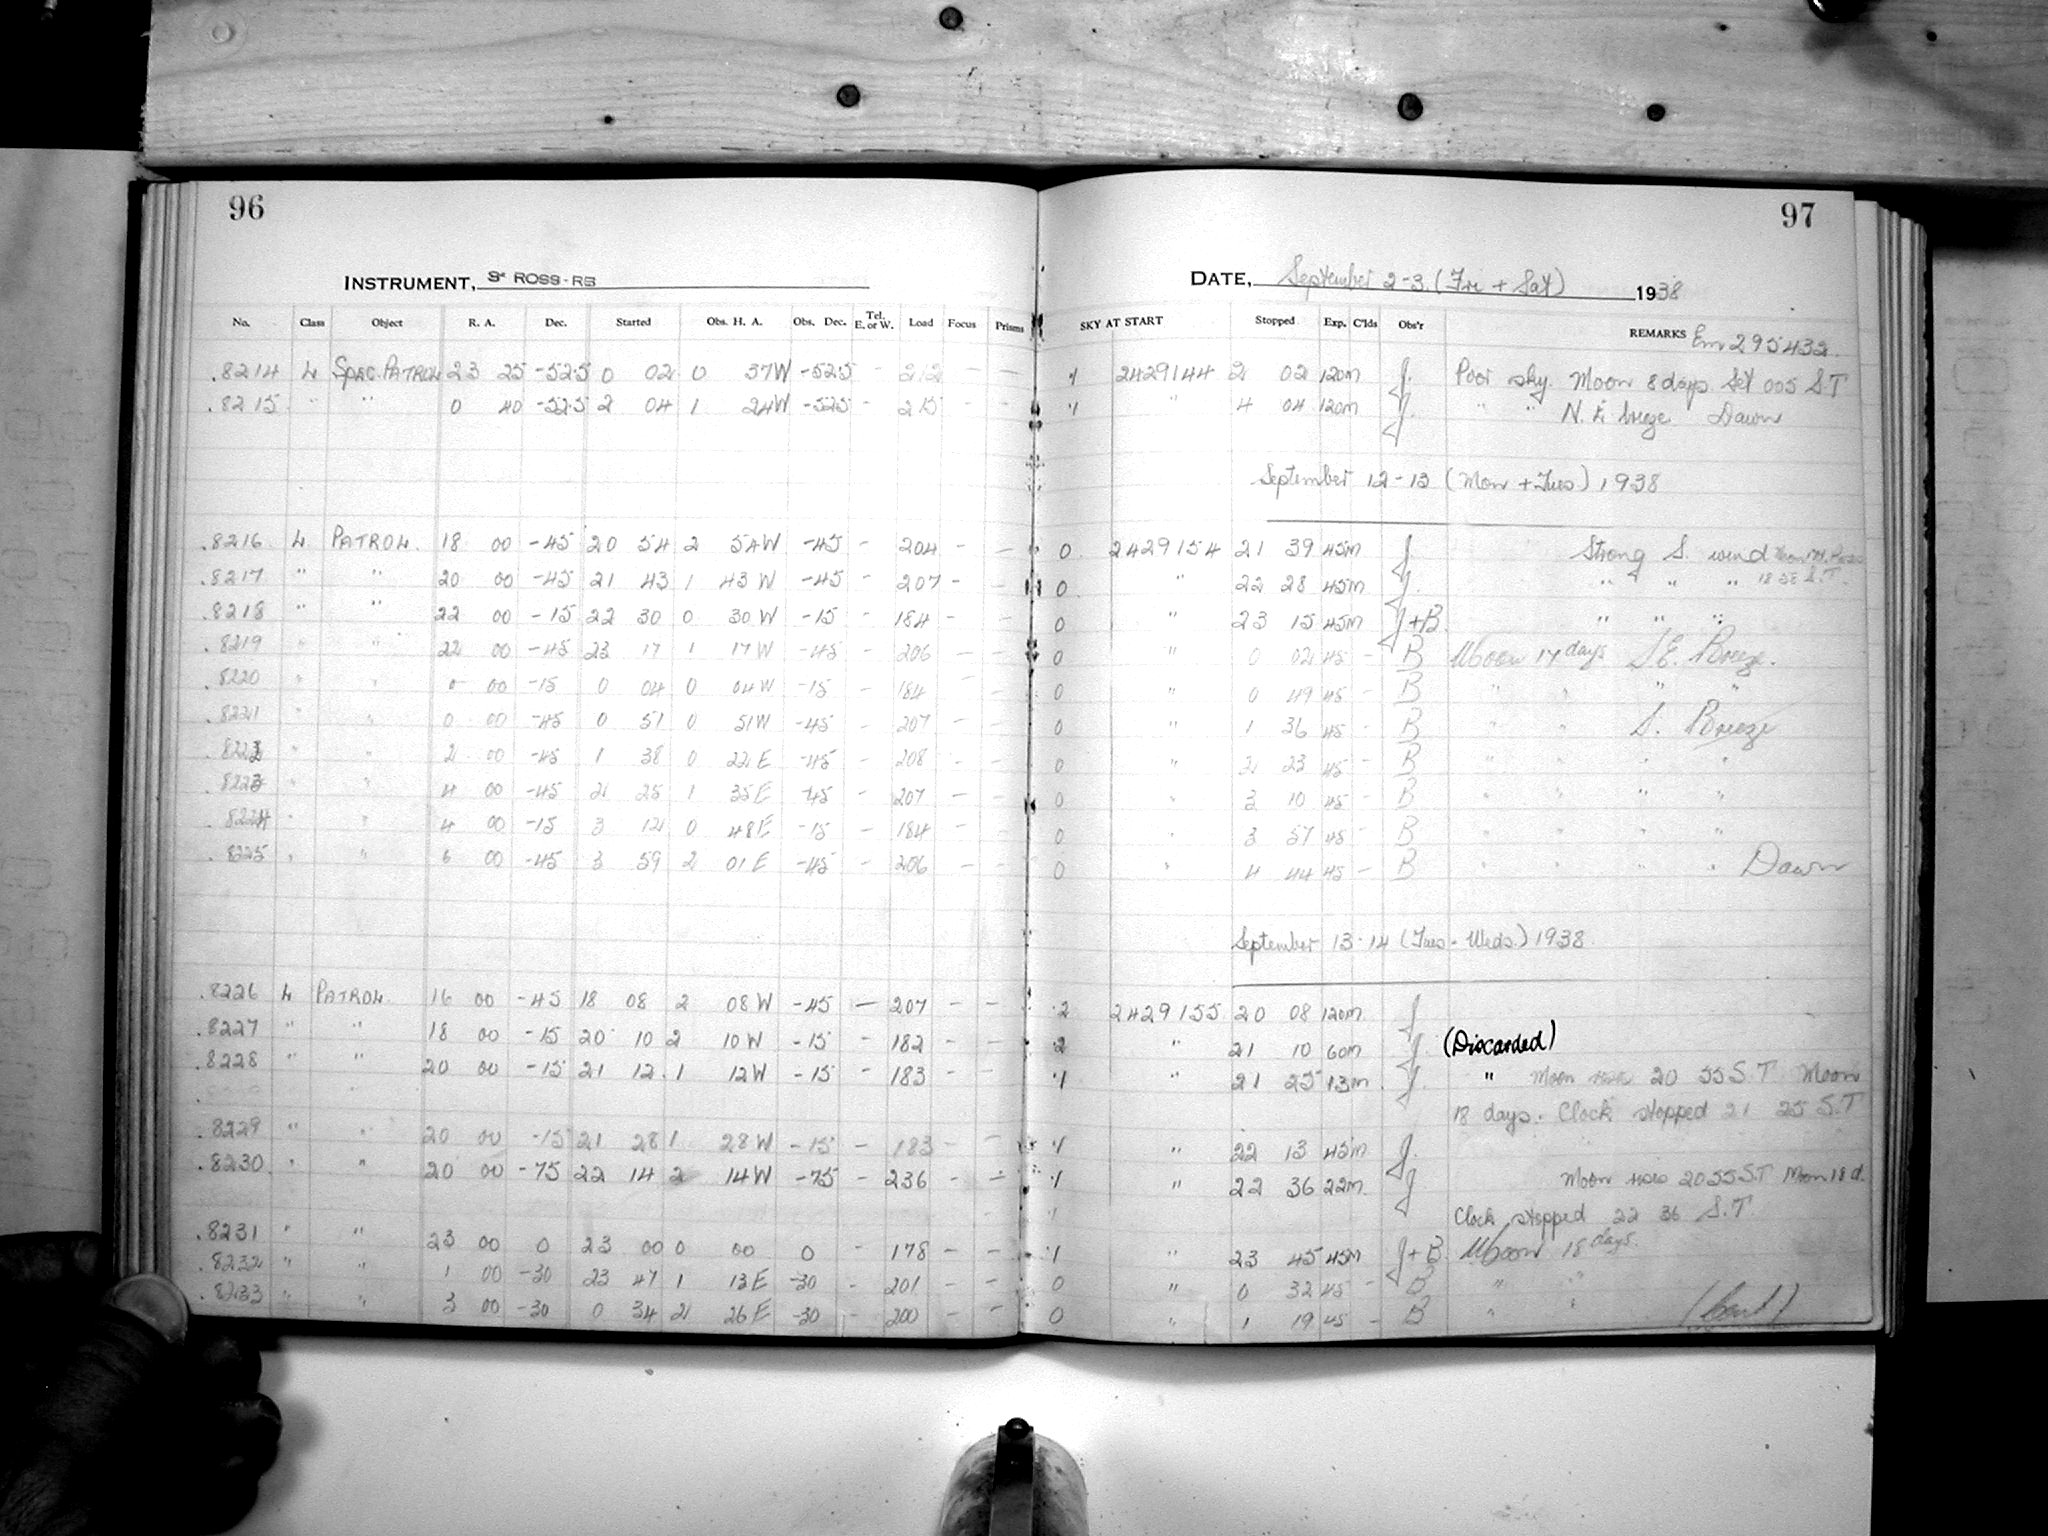 96
97
INSTRUMENT, 3" ROSS-RB
DATE, September 2-3. (Fri + Sat) 1938
No. Class Object R. A. Dec. Started Obs. H. A. Obs. Dec. Tel. E. or W. Load Focus Prisms SKY AT START Stopped Exp. C'lds Obs'r REMARKS Em 295432.
.8214 L SPEC. PATROL 23 25 -52.5 0 02 0 37W -52.5 - 212 - - 1 2429144 2 02 120m J. Poor sky. Moon 8 days. Set 005 S.T
.8215 " " 0 40 -52.5 2 04 1 24W -52.5 - 215 - - 1 " 4 04 120m J. " " N. E breeze. Dawn
September 12-13 (Mon + Tues) 1938
.8216 L PATROL 18 00 -45 20 54 2 54W -45 - 204 - - 0 2429154 21 39 45m J Strong S. wind
.8217 " " 20 00 -45 21 43 1 43W -45 - 207 - - 0 " 22 28 45m J. " " " 18 58 S.T.
.8218 " " 22 00 -15 22 30 0 30W -15 - 184 - - 0 " 23 15 45m J+B. " " "
.8219 " " 22 00 -45 23 17 1 17W -45 - 206 - - 0 " 0 02 45 - B Moon 17 days S.E. Breeze.
.8220 " " 0 00 -15 0 04 0 04W -15 - 184 - - 0 " 0 49 45 - B " " " "
.8221 " " 0 00 -45 0 51 0 51W -45 - 207 - - 0 " 1 36 45 - B " " S. Breeze
.8222 " " 2 00 -45 1 38 0 22E -45 - 208 - - 0 " 2 23 45 - B " " " "
.8223 " " 4 00 -45 2 25 1 35E -45 - 207 - - 0 " 3 10 45 - B " " " "
.8224 " " 4 00 -15 3 12 0 48E -15 - 184 - - 0 " 3 57 45 - B " " " "
.8225 " " 6 00 -45 3 59 2 01E -45 - 206 - - 0 " 4 44 45 - B " " " " Dawn
September 13-14 (Tues - Weds.) 1938
.8226 L PATROL 16 00 -45 18 08 2 08W -45 - 207 - - 2 2429155 20 08 120m J
.8227 " " 18 00 -15 20 10 2 10W -15 - 182 - - 2 " 21 10 60m J. (Discarded)
.8228 " " 20 00 -15 21 12 1 12W -15 - 183 - - 1 " 21 25 13m J. " Moon rises 20 55 S.T Moon
18 days. Clock stopped 21 25 S.T
.8229 " " 20 00 -15 21 28 1 28W -15 - 183 - - 1 " 22 13 45m J.
.8230 " " 20 00 -75 22 14 2 14W -75 - 236 - - 1 " 22 36 22m J Moon rises 20 55 S.T Moon 18 d.
Clock stopped 22 36 S.T.
.8231 " " 23 00 0 23 00 0 00 0 - 178 - - 1 " 23 45 45m J+B. Moon 18 days.
.8232 " " 1 00 -30 23 47 1 13E -30 - 201 - - 0 " 0 32 45 - B " "
.8233 " " 3 00 -30 0 34 2 26E -30 - 200 - - 0 " 1 19 45 - B " " (Cont)